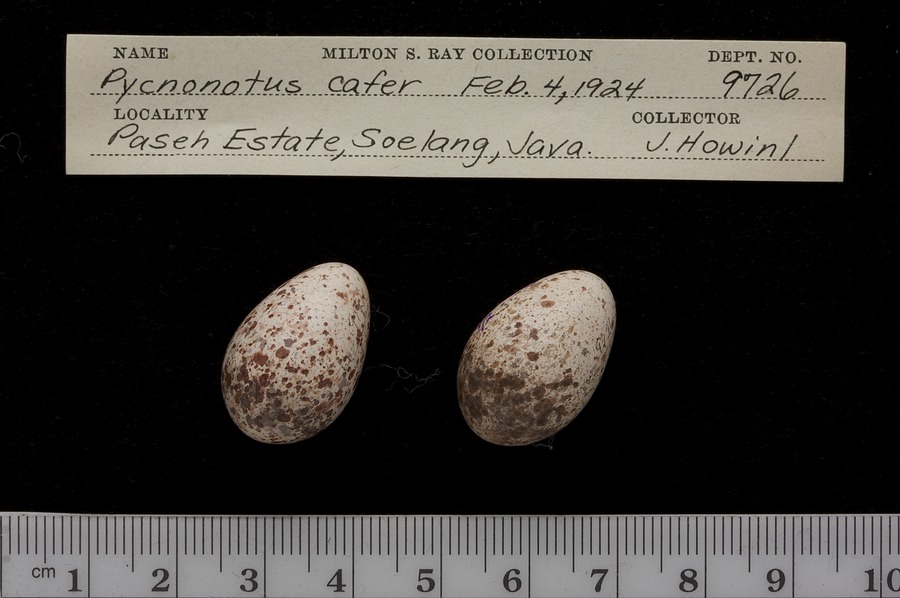 NAME MILTON S. RAY COLLECTION DEPT. NO.
Pycnonotus cafer Feb. 4, 1924 9726
LOCALITY COLLECTOR
Paseh Estate, Soelang, Java. J. Howinl
cm 1 2 3 4 5 6 7 8 9 10